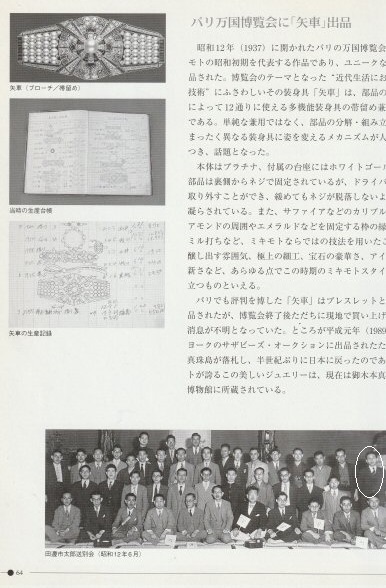 パリ万国博覧会に「矢車」出品
昭和12年（1937）に開かれたパリの万国博覧会
モトの昭和初期を代表する作品であり、ユニークな
品された。博覧会のテーマとなった“近代生活にお
技術”にふさわしいその装身具「矢車」は、部品の
によって12通りに使える多機能装身具の帯留め兼
である。単純な兼用ではなく、部品の分解・組み立
まったく異なる装身具に姿を変えるメカニズムが人
つき、話題となった。
本体はプラチナ、付属の台座にはホワイトゴール
部品は裏側からネジで固定されているが、ドライバ
取り外すことができ、緩めてもネジが脱落しないよ
凝らされている。また、サファイアなどのカリブル
アモンドの周囲やエメラルドなどを固定する枠の縁
ミル打ちなど、ミキモトならではの技法を用いたこ
醸し出す雰囲気、極上の細工、宝石の豪華さ、アイ
新さなど、あらゆる点でこの時期のミキモトスタイ
立つものといえる。
パリでも評判を博した「矢車」はブレスレットと
品されたが、博覧会終了後ただちに現地で買い上げ
消息が不明となっていた。ところが平成元年（1989
ヨークのサザビーズ・オークションに出品されたた
真珠島が落札し、半世紀ぶりに日本に戻ったのであ
トが誇るこの美しいジュエリーは、現在は御木本真
博物館に所蔵されている。
矢車（ブローチ／帯留め）
当時の生産台帳
矢車の生産記録
田邊市太郎送別会（昭和12年6月）
64